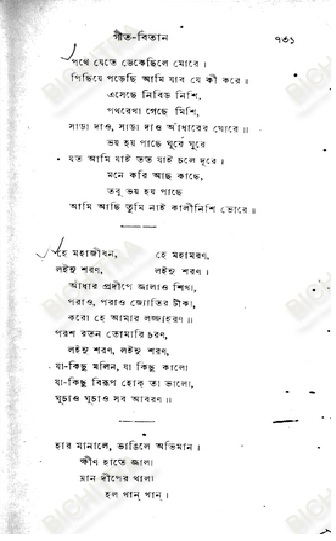 গীত-বিতান ৭৩১
পথে যেতে ডেকেছিলে মোরে।
পিছিয়ে পড়েছি আমি যাব যে কী করে।
এসেছে নিবিড় নিশি,
পথরেখা গেছে মিশি,
সাড়া দাও, সাড়া দাও আঁধারের ঘোরে॥
ভয় হয় পাছে ঘুরে ঘুরে
যত আমি যাই তত যাই চলে দূরে।
মনে করি আছ কাছে,
তবু ভয় হয় পাছে
আমি আছি তুমি নাই কালীনিশি ভোরে॥
হে মহাজীবন, হে মহামরণ,
লইনু শরণ, লইনু শরণ।
আঁধার প্রদীপে জ্বালাও শিখা,
পরাও, পরাও জ্যোতির টীকা,
করো হে আমার লজ্জাহরণ॥
পরশ রতন তোমারি চরণ,
লইনু শরণ, লইনু শরণ,
যা-কিছু মলিন, যা কিছু কালো
যা-কিছু বিরূপ হোক্ তা ভালো,
ঘুচাও ঘুচাও সব আবরণ॥
হার মানালে, ভাঙিলে অভিমান।
ক্ষীণ হাতে জ্বালা
ম্লান দীপের থালা
হল খান্ খান্।
BICHITRA